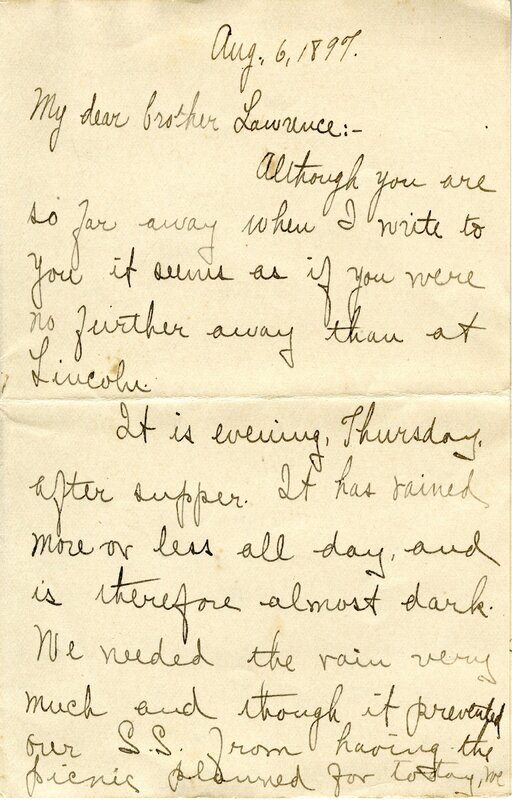 Aug. 6, 1897.
My dear brother Lawrence:-
Although you are
so far away when I write to
you it seems as if you were
no further away than at
Lincoln.
It is evening, Thursday,
after supper. It has rained
more or less all day, and
is therefore almost dark.
We needed the rain very
much and though it prevented
our S.S. from having the
picnic planned for today, we